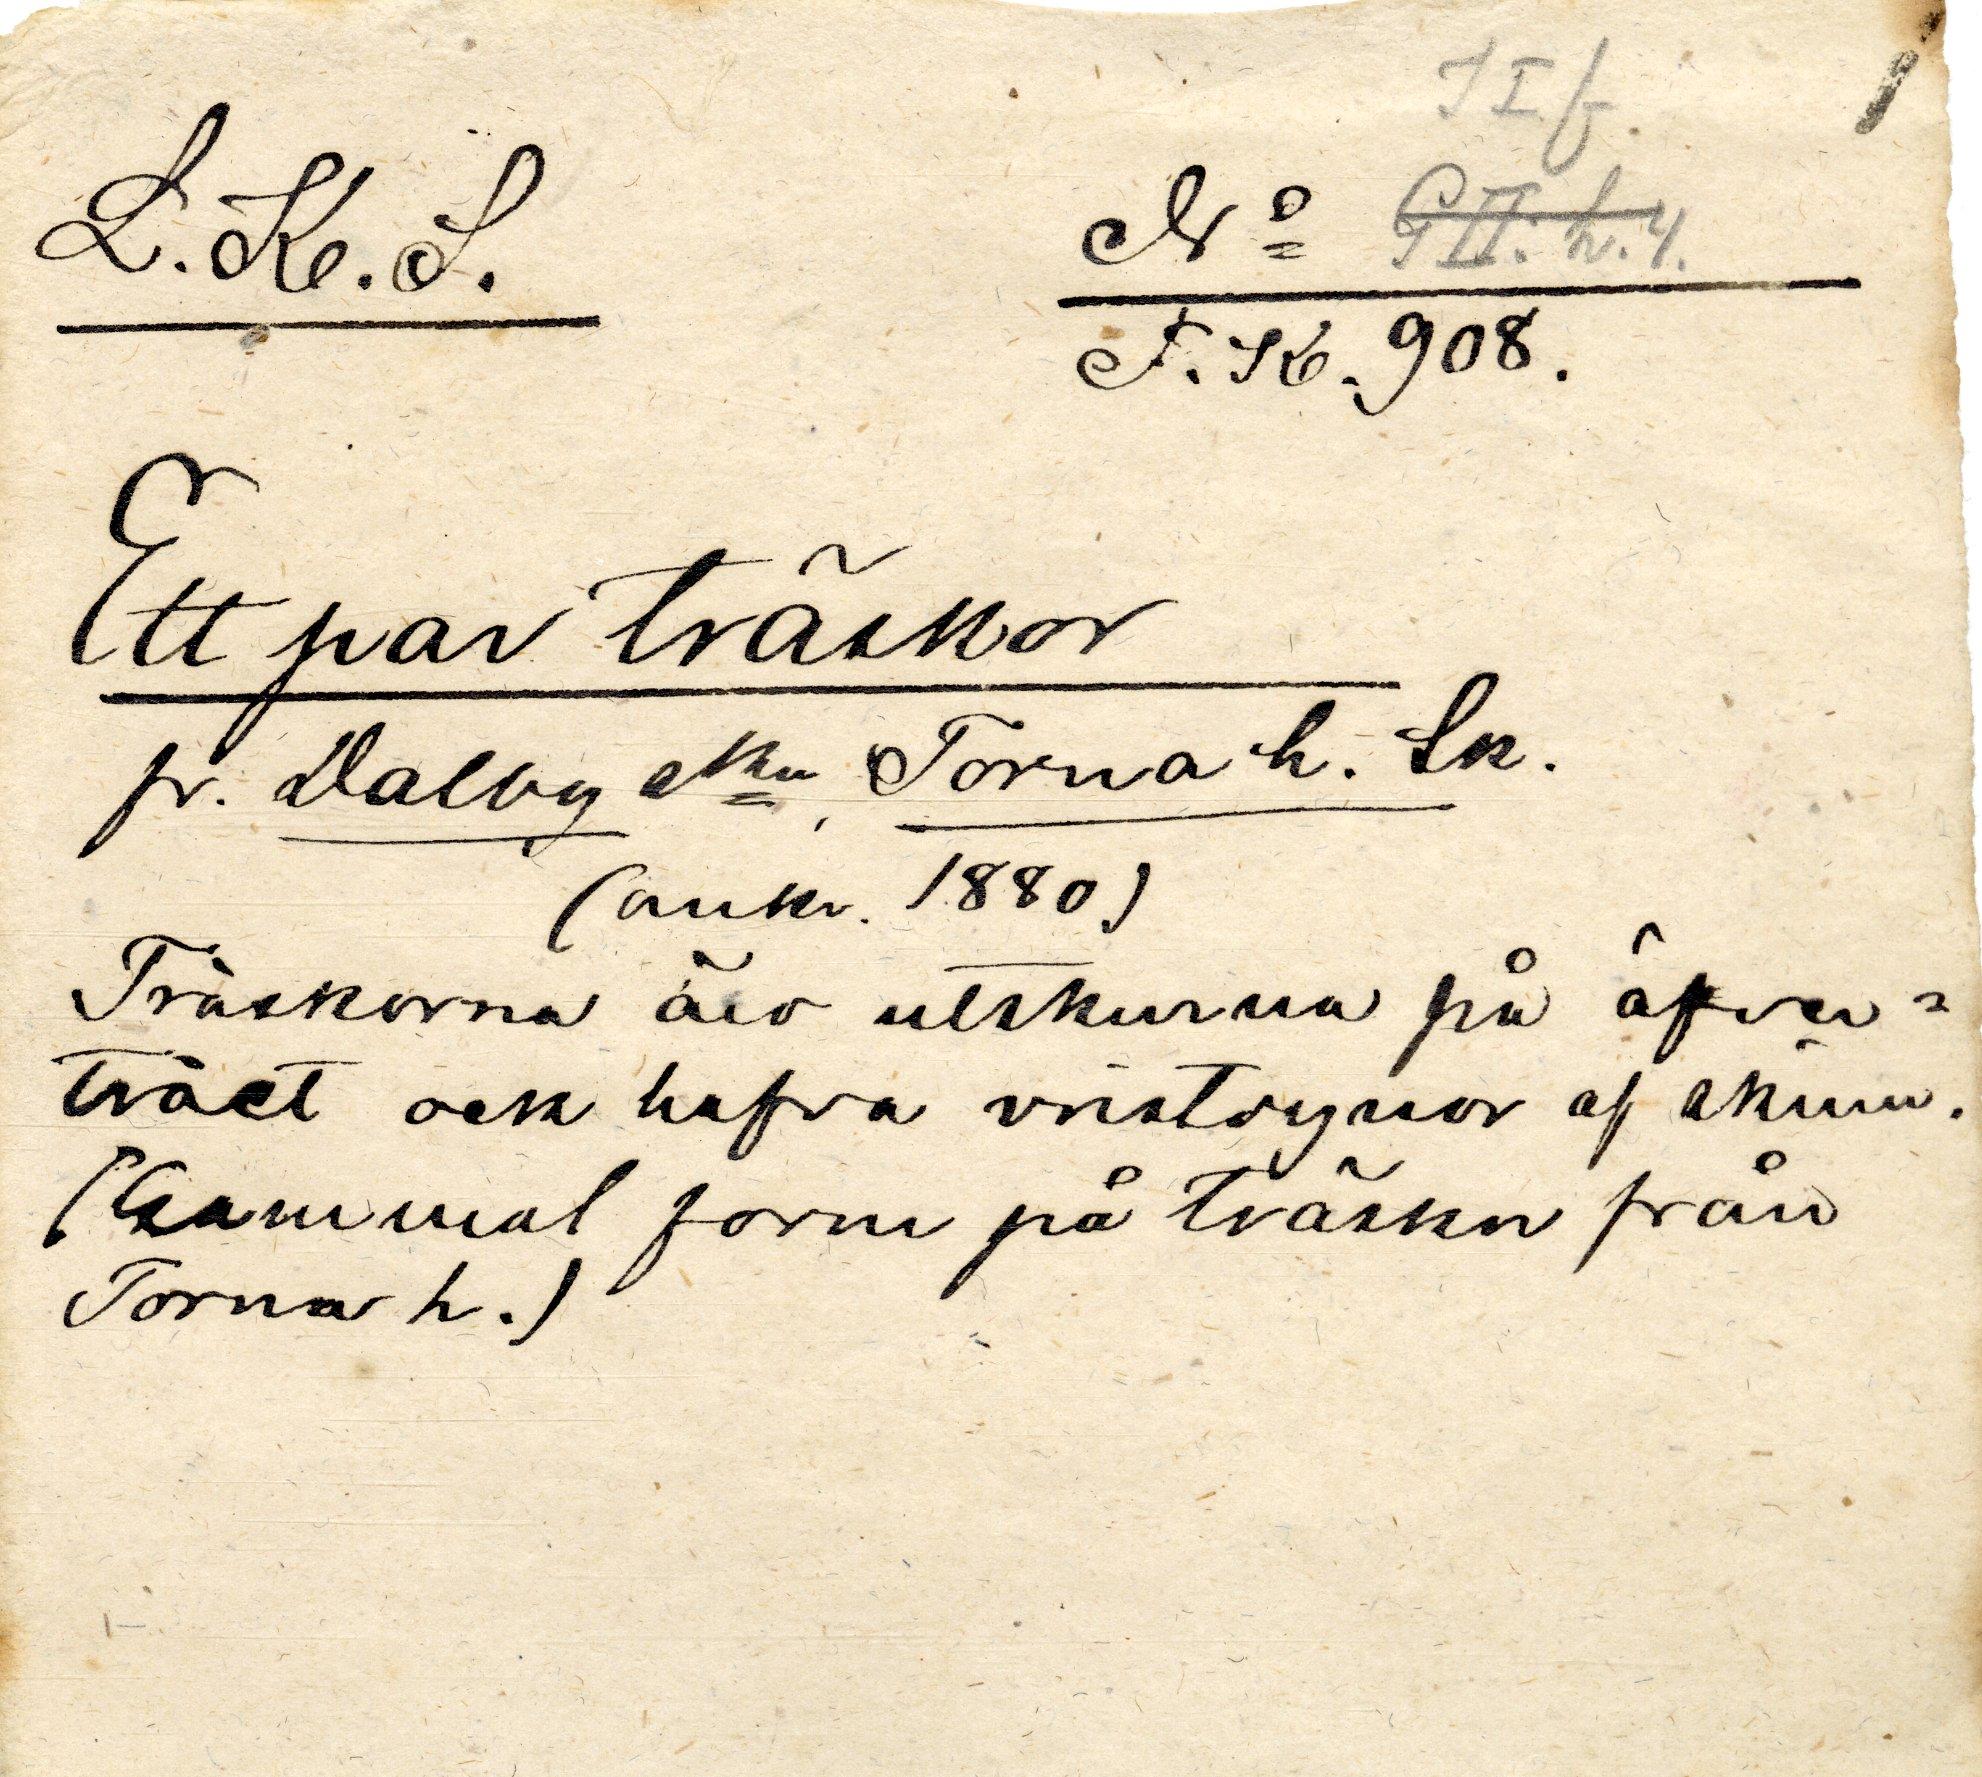 I I f.
L. K. S. Nº G II. h. 4.
F. K. 908.
Ett par träskor
fr. Dalby skn, Torna h. Sk.
(omkr. 1880)
Träskorna äro utskurna på öfver=
träet och hafva vristdynor af skinn.
(Gammal form på träsko från
Torna h.)